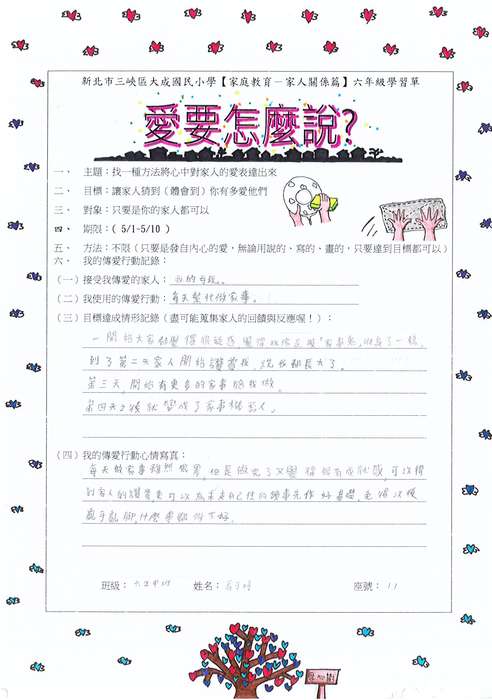 新北市三峽區大成國民小學【家庭教育－家人關係篇】六年級學習單
愛要怎麼說?
一、 主題：找一種方法將心中對家人的愛表達出來
二、 目標：讓家人猜到（體會到）你有多愛他們
三、 對象：只要是你的家人都可以
四、 期限：( 5/1~5/10 )
五、 方法：不限（只要是發自內心的愛，無論用說的、寫的、畫的，只要達到目標都可以）
六、 我的傳愛行動記錄：
（一）接受我傳愛的家人：我的
（二）我使用的傳愛行動：每天幫忙做家事。
（三）目標達成情形記錄（盡可能蒐集家人的回饋與反應喔！）：
一開始大家
到了第二天家人開始讚賞我，說我都長大了。
第三天，開始有更多的家事給我做，
第四天之後就變成了家事機器人。
（四）我的傳愛行動心情寫真：
每天做家事雖然很累，但是做完了又覺得很有成就感，可以得
到家人的讚賞更可以為未來自己住的
班級： 姓名： 座號：11